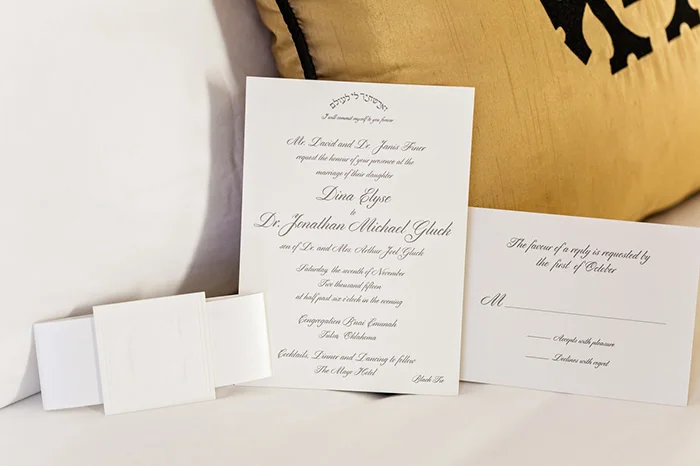 וארשתיך לי לעולם
I will commit myself to you forever
Mr. David and Dr. Janis Finer
request the honour of your presence at the
marriage of their daughter
Dina Elyse
to
Dr. Jonathan Michael Gluck
son of Dr. and Mrs. Arthur Joel Gluck
Saturday the seventh of November
Two thousand fifteen
at half past six o'clock in the evening
Congregation B'nai Emunah
Tulsa, Oklahoma
Cocktails, Dinner and Dancing to follow
The Mayo Hotel
Black Tie
The favour of a reply is requested by
the first of October
M
Accepts with pleasure
Declines with regret